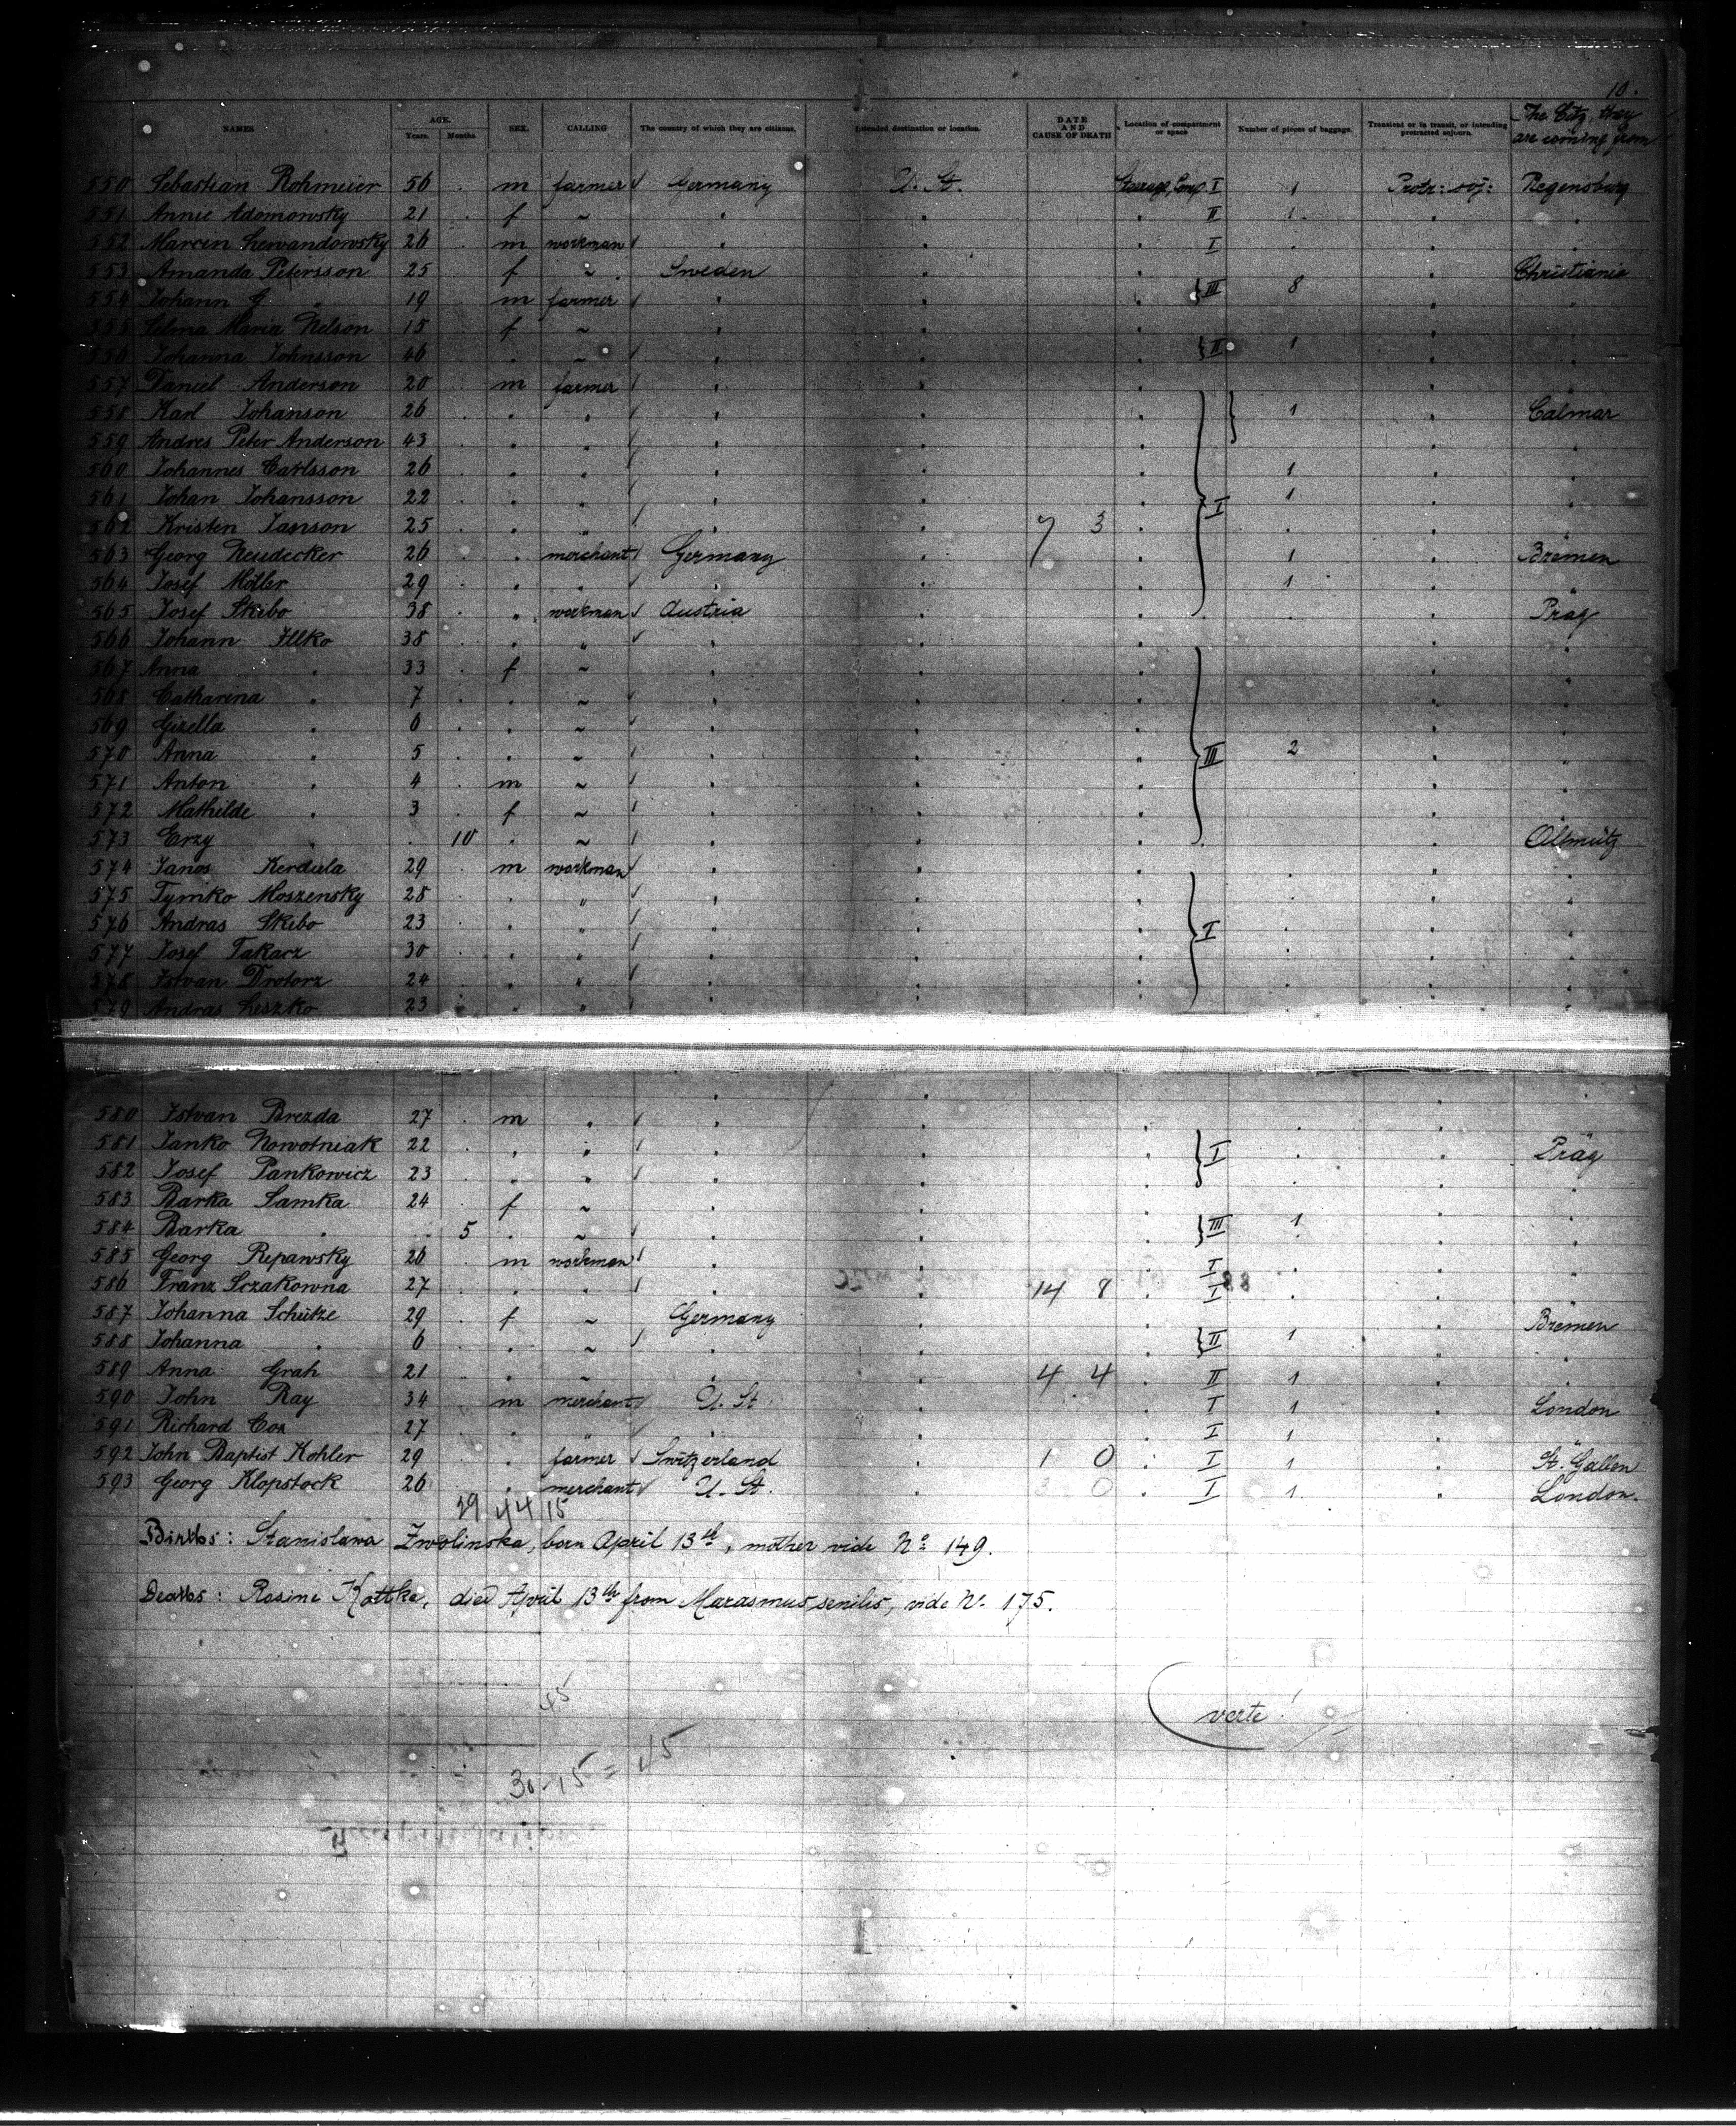 10.
NAMES AGE. Years. Months SEX. CALLING The country of which they are citizens. Intended destination or location. DATE AND CAUSE OF DEATH Location of compartment or space Number of pieces of baggage. Transient or in transit, or intending protracted sojourn. The City, they are coming from
550 Sebastian Rohmeier 56 . m farmer Germany U. St. Steerage, Comp. I 1 Protr: soj: Regensburg
551 Annie Adomowsky 21 . f ~ " " II 1 " "
552 Marcin Lewandowsky 26 . m workman " " I . " "
553 Amanda Petersson 25 . f ~ Sweden " " Christiania
554 Johann G. " 19 . m farmer " " III 8 " "
555 Selma Maria Nelson 15 . f ~ " " "
556 Johanna Johnsson 46 . " ~ " " II 1 " "
557 Daniel Anderson 20 . m farmer " " "
558 Karl Johanson 26 . " " " " 1 " Calmar
559 Andres Peter Anderson 43 . " " " " " "
560 Johannes Carlsson 26 . " " " " 1 " "
561 Johan Johansson 22 . " " " " I 1 " "
562 Kristen Janson 25 . " " " " 7 3 . " "
563 Georg Neudecker 26 . " merchant Germany " 1 " Bremen
564 Josef Möller 29 . " " " " 1 " "
565 Josef Skibo 38 . " workman Austria " . " Prag
566 Johann Illko 38 . " " " " " "
567 Anna " 33 . f ~ " " " "
568 Catharina " 7 . " ~ " " " "
569 Gizella " 6 . " ~ " " " "
570 Anna " 5 . " ~ " " III 2 " "
571 Anton " 4 . m ~ " " " "
572 Mathilde " 3 . f ~ " " " "
573 Erzy " . 10 " ~ " " " Ollmütz
574 Janos Kerdula 29 . m workman " " . " "
575 Tymko Moszensky 28 . " " " " . " "
576 Andras Skibo 23 . " " " " I . " "
577 Josef Takacz 30 . " " " " . " "
578 Istvan Drotorz 24 . " " " " . " "
579 Andras Leszko 23 . " " " " . " "
580 Istvan Brezda 27 . m " " " . " "
581 Janko Nowotniak 22 . " " " " I . " Prag
582 Josef Pankowicz 23 . " " " " . " "
583 Barka Samka 24 . f ~ " " " "
584 Barka " . 5 " ~ " " III 1 " "
585 Georg Repawsky 26 . m workman " " I . " "
586 Franz Sczakowna 27 . " " " " 14 8 I . " "
587 Johanna Schütze 29 . f ~ Germany " " Bremen
588 Johanna " 6 . " ~ " " II 1 " "
589 Anna Grah 21 . " ~ " " 4 4 II 1 " "
590 John Ray 34 . m merchant U. St. " I 1 " London
591 Richard Cox 27 . " " " " I 1 " "
592 John Baptist Kohler 29 . " farmer Switzerland " 1 0 I 1 " St. Gallen
593 Georg Klopstock 26 . " merchant U. St. " 3 0 I 1. " London.
29 44 15
Births: Stanislawa Zwolinska, born April 13th, mother vide No 149.
Deaths: Rosine Kottke, died April 13th from Marasmus senilis, vide N. 175.
45
verte!
30-15=45